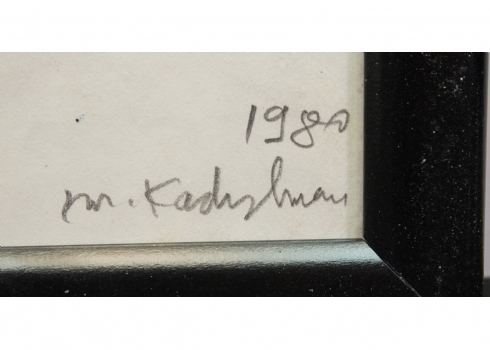 1980
m. Kadishman